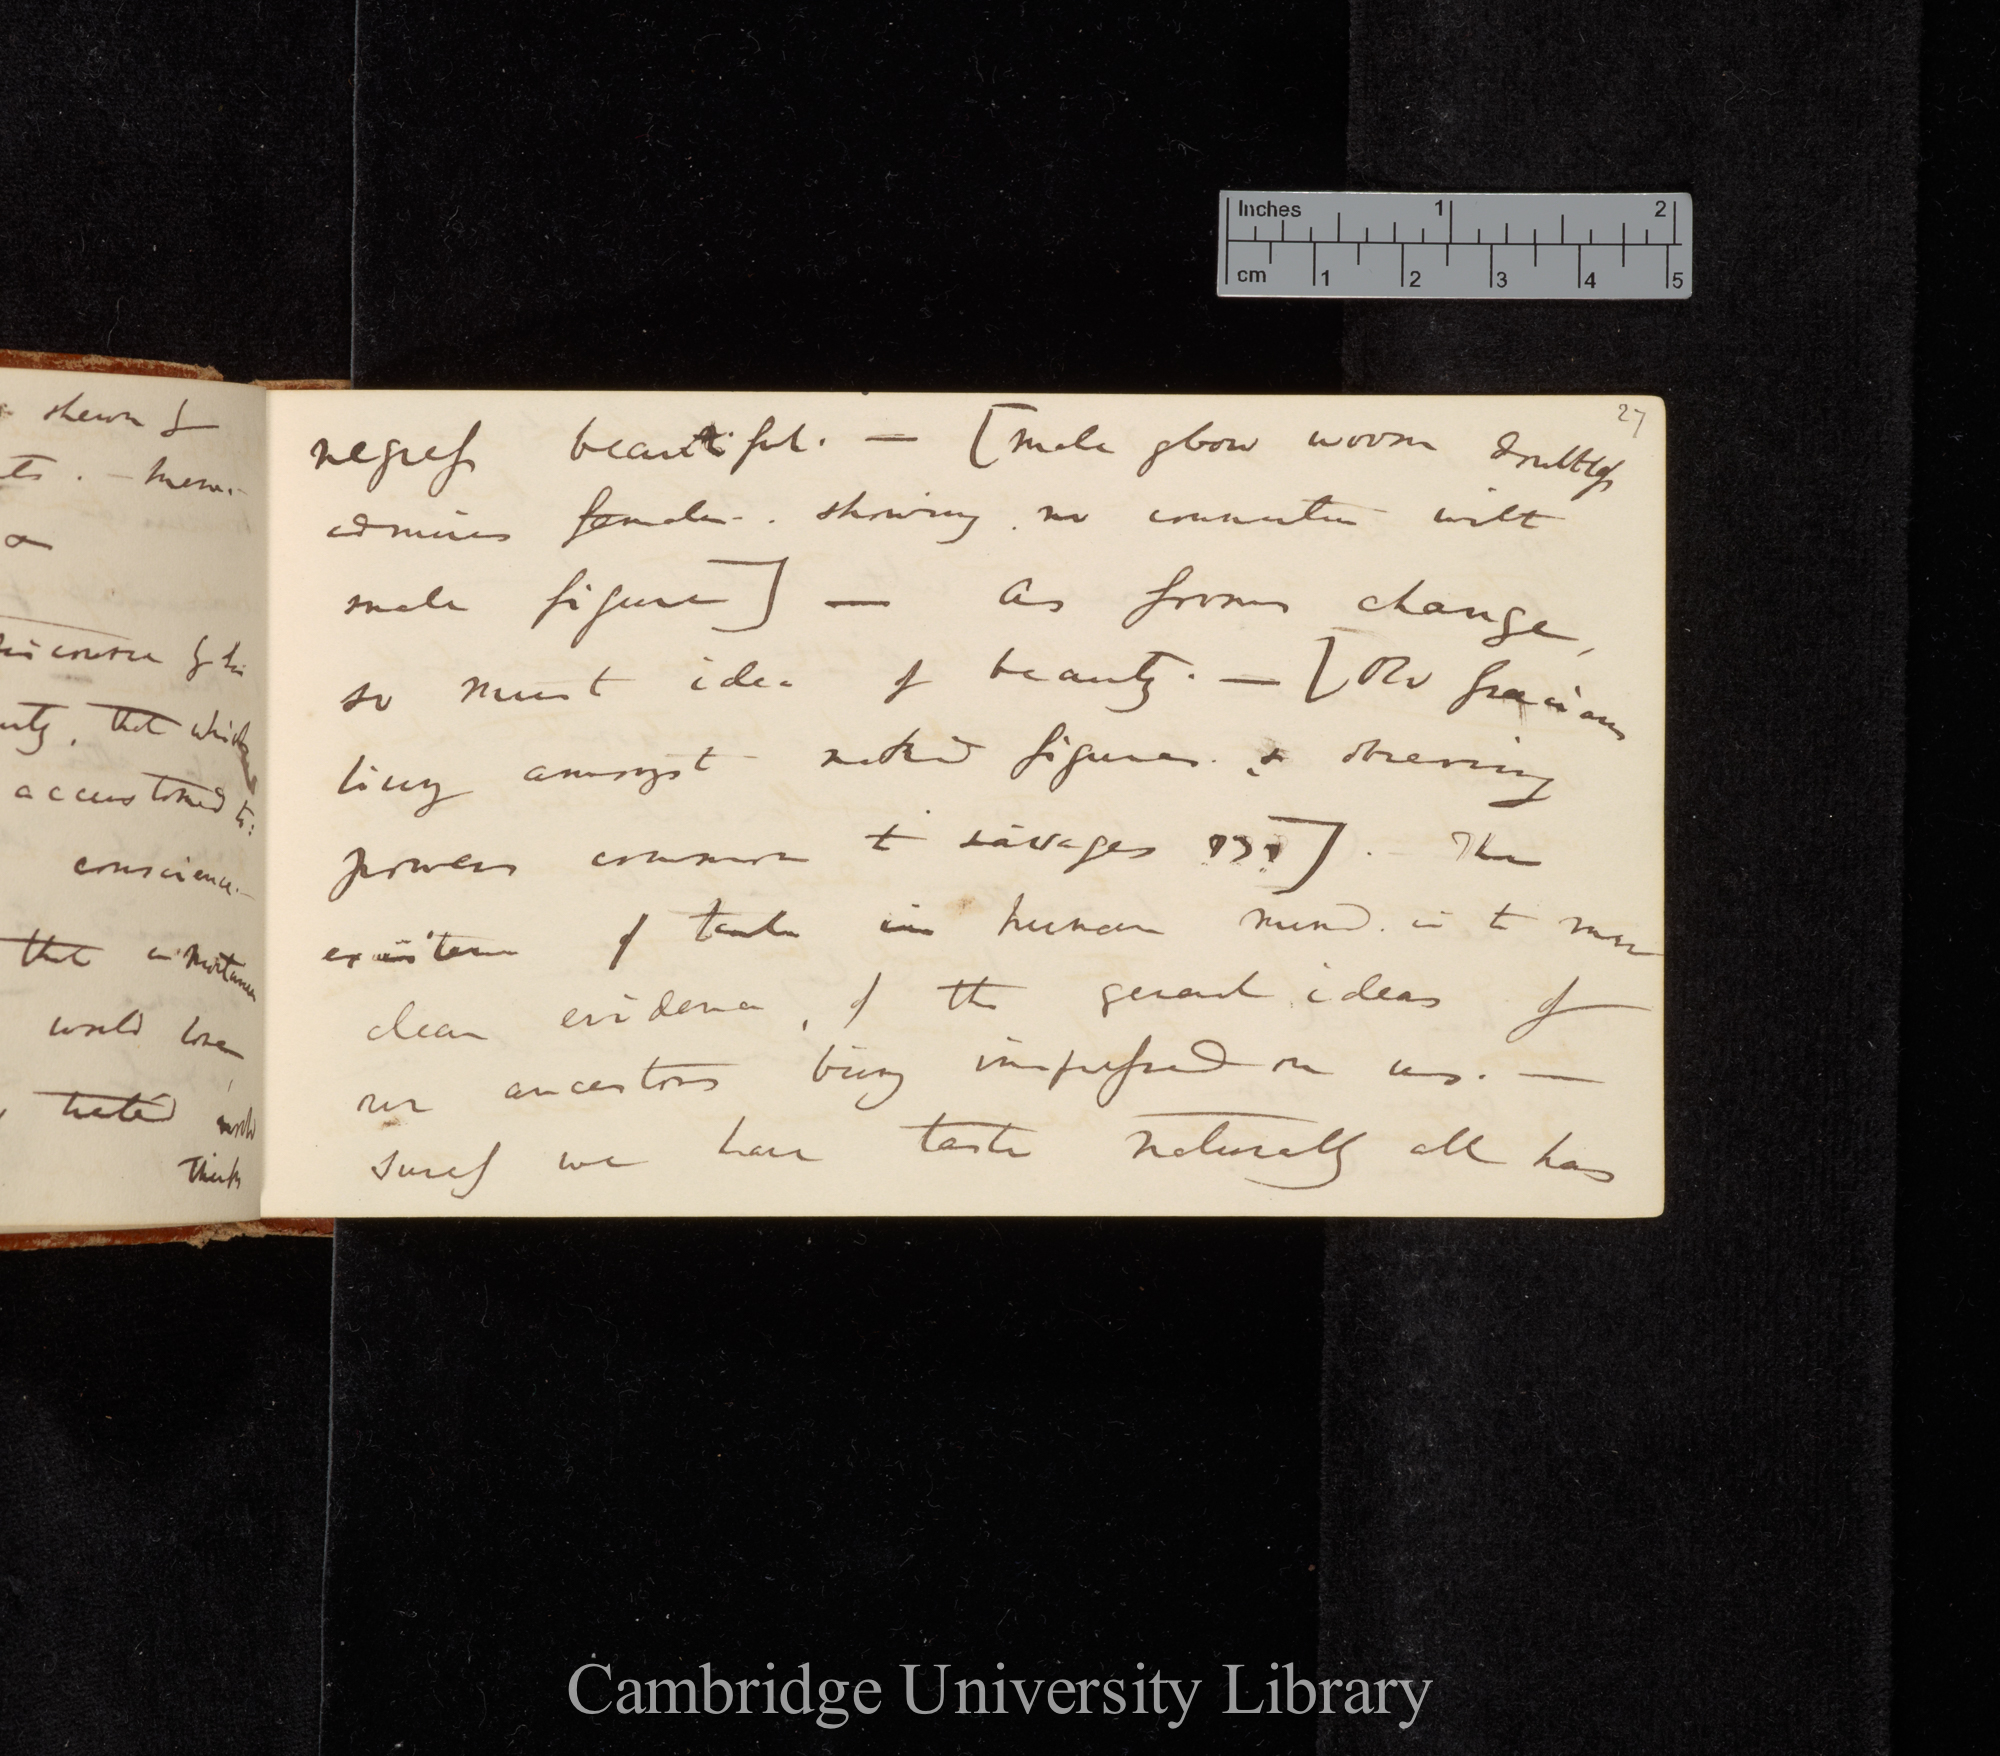 Inches 1 2
cm 1 2 3 4 5
27
shewn of
that which
accustomed to:
conscience. —
that
would have
hated
think
negress beautiful. — [male glow worm doubtless
admires female. showing. no connection with
male figure] — As forms change,
so must idea of beauty. — [Old Grecians
living amongst naked figures. & observing
powers common to savages ???]. — The
existence of taste in human mind. is to me
clear evidence, of the general ideas of
our ancestors being impressed on us. —
surely we have taste naturally all has
Cambridge University Library